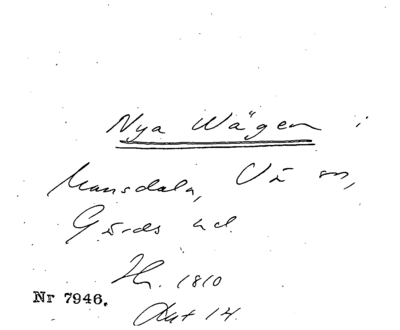 Nya Wägen i
Mansdala, Vä sn,
Gärds hd.
Hr. 1810
Nr 7946.
Akt 14.